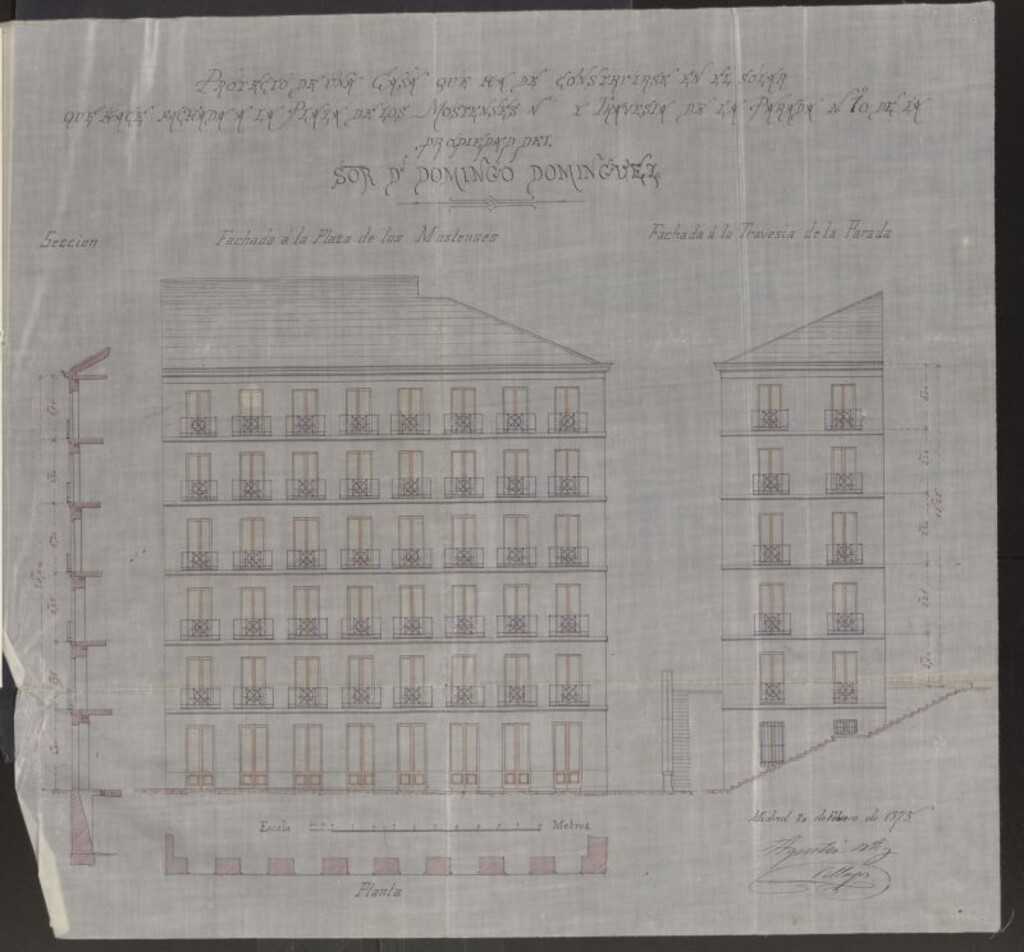 PROYECTO DE UNA CASA QUE HA DE CONSTRUIRSE EN EL SOLAR
QUE HACE FACHADA A LA PLAZA DE LOS MOSTENSES N Y TRAVESIA DE LA PARADA N 10 DE LA
PROPIEDAD DEL
SOR Dn DOMINGO DOMINGUEZ
Seccion
Fachada á la Plaza de los Mostenses
Fachada á la Travesia de la Parada
Escala
Metros
Planta
Madrid de de 1875
Agustin Ortiz
Villajos